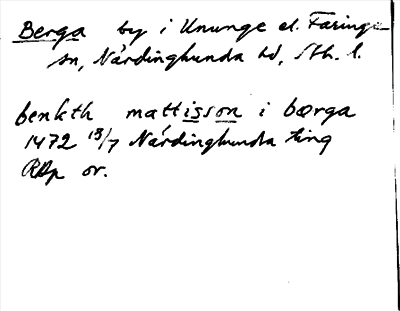 Berga by i Ununge el. Faringe
sn, Närdinghunda hd, Sth. l.
benkth mattisson i bærga
1472 13/7 Närdinghundra ting
RAp or.